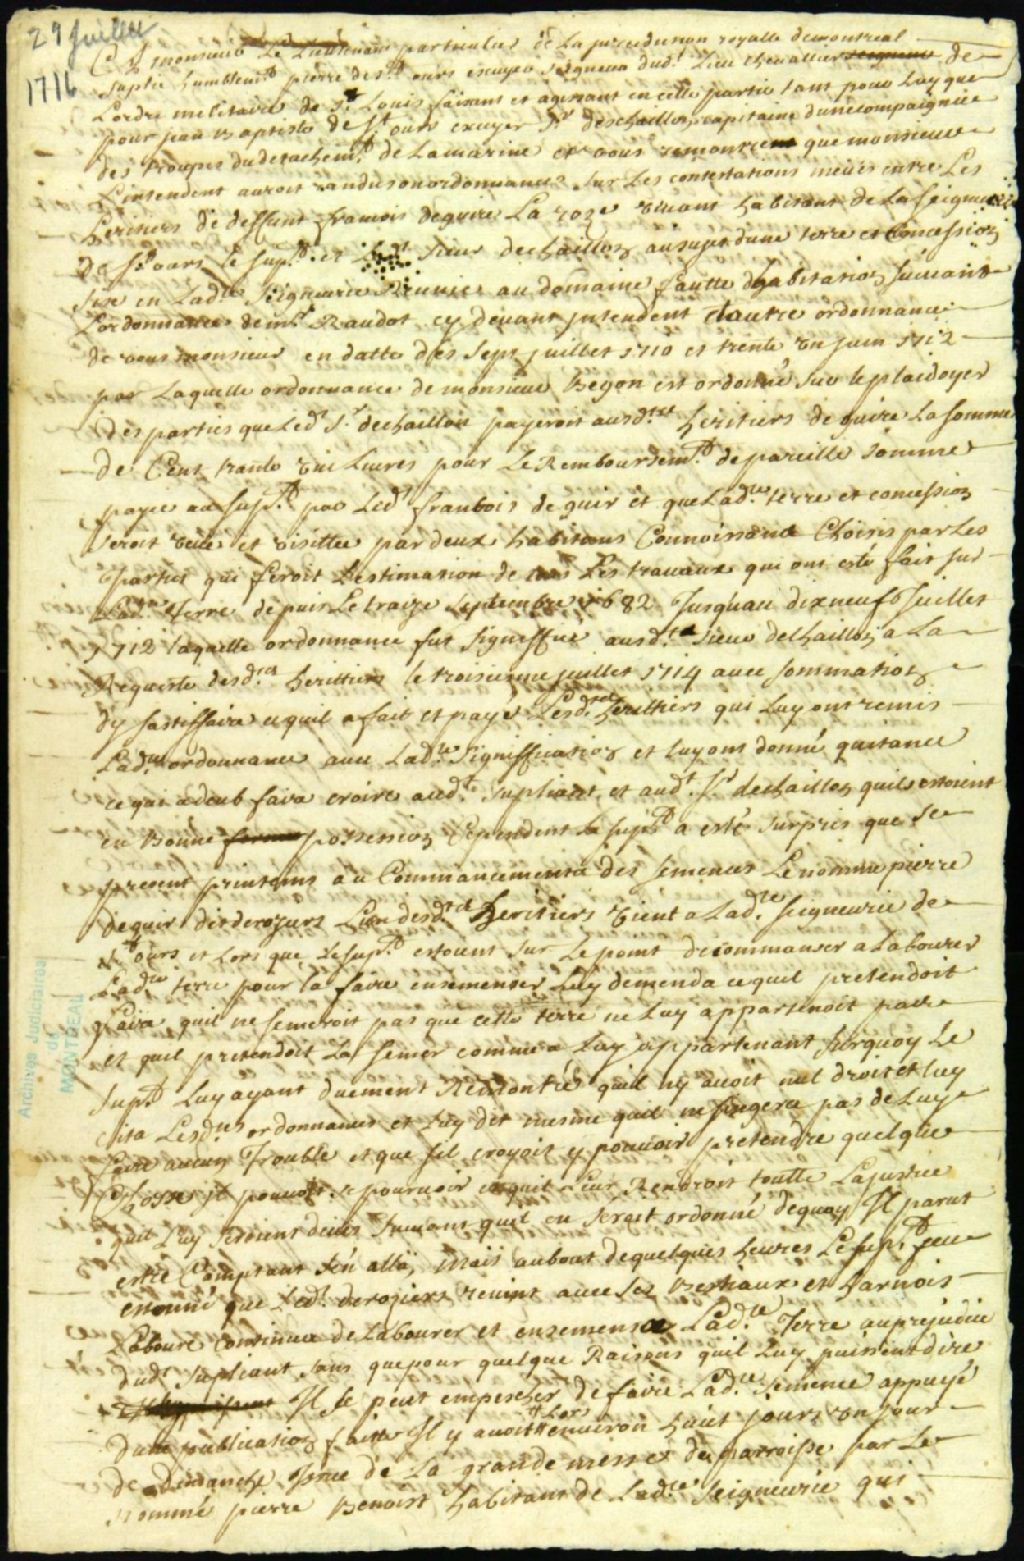 29 Juillet
1716
A monsieur Le Lieutenant particulier de La jurisdiction royalle de montreal
Suplie humblemt pierre de St ours escuyer seigneur dud. Lieu chevallier de
Lordre militaire de St Louis faisant et agissant en cette partie tant pour Luy que
pour jean baptiste de St ours escuyer Sr deschaillon capitaine dune compaignie
des troupes du detachemt de Lamarine et vous remontre que monsieur
Lintendent auroit randu son ordonnance sur Les contestations meües entre Les
heritiers de deffunt francois deguire La roze vivant habitant de La seigneurie
de St ours le supt et Sieur deschaillon au sujet dune terre et Concession
size en Ladte Seigneurie Reunies au domaine fautte dhabitation suivant
Lordonnance de mr Raudot cy devant intendent dautre ordonnance
de vous monsieur en datte des sept juillet 1710 et trente un juin 1712
par Laquelle ordonnance de monsieur Begon est ordonné sur le plaidoyer
des parties que Led. Sr dechaillon payeroit ausd. heritiers de guire La somme
de Cent trante Livres pour Le Remboursemt de pareille somme
payee au supt par Led. francois de guir et que Lad. terre et concession
seroit veüe et visittee par deux habitans Connoissant Choisis par Les
partie qui feroit Lestimation de Les travaux qui ont esté fait sur
Lad. terre depuis Le traize septembre 1682 Jusquau dixneufe Juillet
1712 laquelle ordonnance fut signiffiee ausd. sieur dechaillon a La
Requeste desd. heritiers le troisieme juillet 1714 avec sommation
dy sastiffaire ce quil a fait et payé Lesd. heritiers qui Luy ont remis
Lad. ordonnance avec Lad. Signiffication et luy ont donné quitance
ce qui a deub faire croire aud. supliant et aud. Sr dechaillon quils estoient
en bonne possession Cependent le supt a esté surpris que Se
present printems au Commancement des semences Le nommé pierre
deguir dit deroziers Lun desd. heritiers vient a Lad. seigneurie de
St ours et Lors que Le supt estoient sur Le point de commanser a Labourer
Lad. terre pour la faire ensemenser Luy demenda ce quil pretendoit
faire quil ne semeroit pas que cette terre ne Luy appartenoit pas
et quil pretendoit La semer comme a Luy appartenant surquoy Le
supt Luy ayant duement Remontré quil ny avoit nul droit et luy
cita Lesd. ordonnances et Luy dit mesme quil ne de Luy
faire aucun Trouble et que sil croyoit y pouvoir pretendre quelque
Chosse pouvoit se pourvoir et quil Rendroit toutte Lajustice
quil Luy suivant quil en seroit ordonné dequoy Il parut
estre Comptant sen alla, mais aubout dequelques heures Le supt feu
etonné que Led. deroziers revint avec ses Bestiaux et harnois
Labouré Continua de Labourer et ensemenser Lad. Terre auprejudice
dud. supliant sans que pour quelque Raisons quil Luy puissent dire
Il se peut empescher de faire Lad. semence appuyé
dune publication faitte Il y avoit Lors environ huit jours un jour
de dimanche Issue de La grande messe de parroisse par Le
nommé pierre Benoist habitant de Lad. Seigneurie qui
Archives Judiciaires
de
MONTREAL